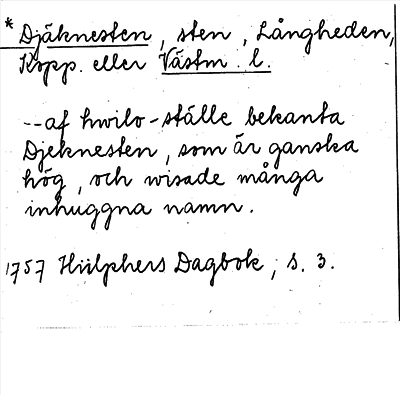 * Djäknesten, sten, Långheden,
Kopp. eller Västm. l.
-- af hwilo-ställe bekanta
Djeknesten, som är ganska
hög, och wisade många
inhuggna namn.
1757 Hülphers Dagbok, s. 3.